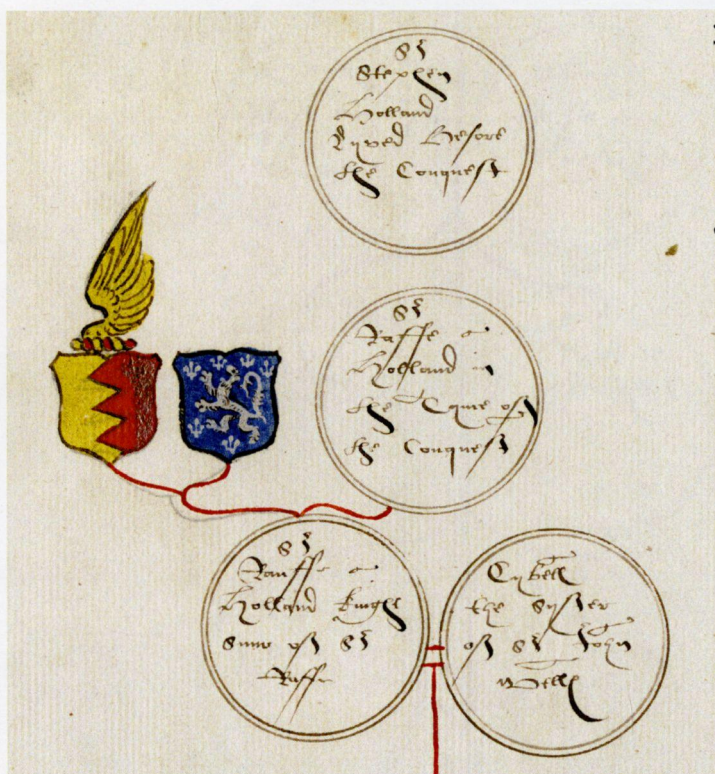 Sr
Stephen
Holland
Lyved Before
the Conquest
Sr
Raffe a
Holland in
the Tyme of
the Conquest
Sr
Rauffe a
Holland knight
Sune of Sr
Raffe
Cybell
the Syster
of Sr John